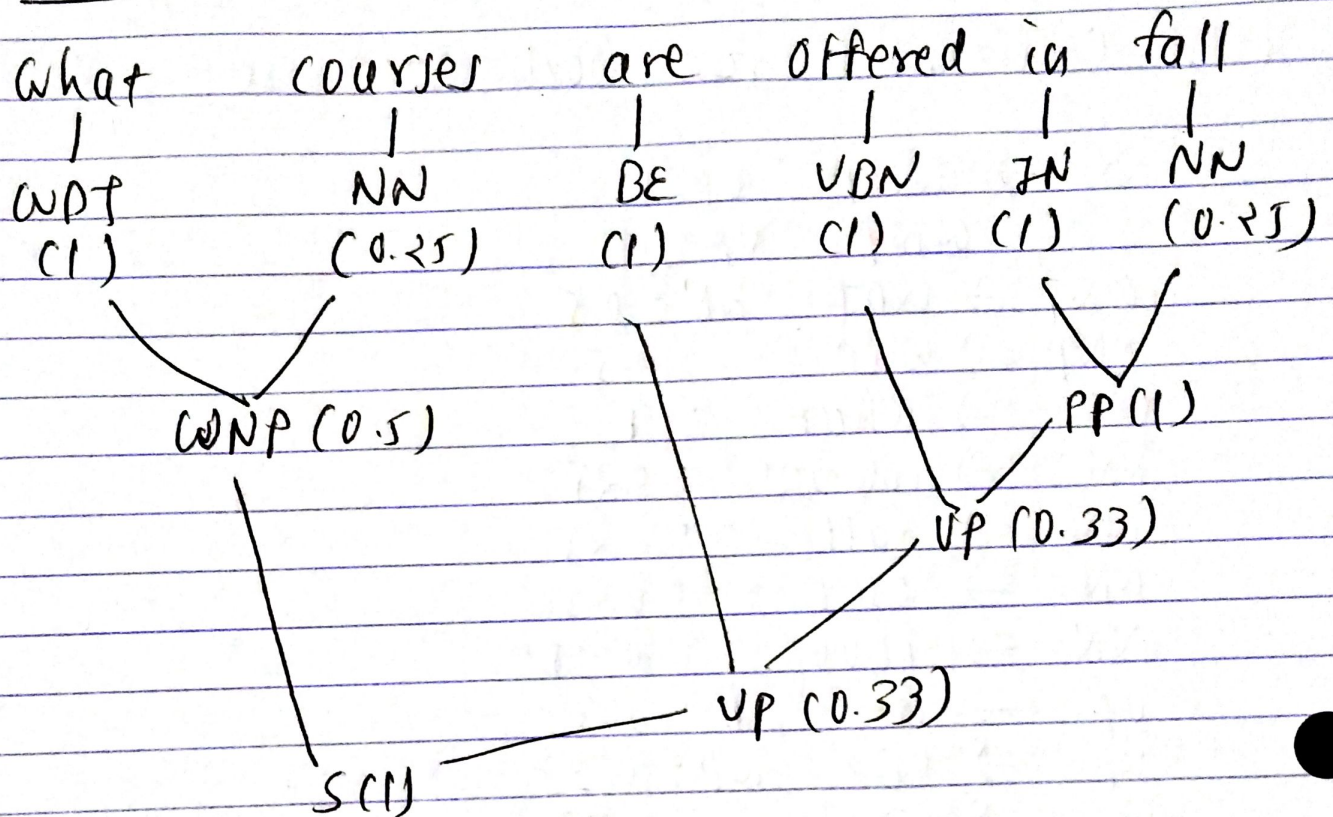 What courses are offered in fall
WDT NN BE VBN IN NN
(1) (0.25) (1) (1) (1) (0.25)
WNP (0.5) PP (1)
VP (0.33)
VP (0.33)
S (1)